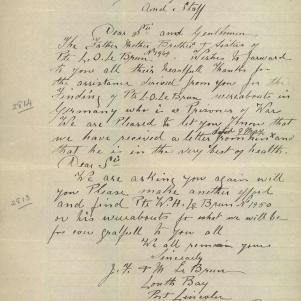 and Staff
Dear Sir and Gentlemen
The Father Mother, Brother & Sisters of
Pte L. O. Le Brun Wishes to forward
to you all their heartfelt thanks for
the assistance derived from you for the
Finding of Pte L.O. Le Brun wereabouts in
Germany who is a Prisoner of War
2814
We are Pleased to let you Know that
we have received a letter from him and
that he is in the very best of health.
Dear Sir
We are asking you again will
you Please make another effort
2813
and find Pte W.H. Le Brun No 1950
or his wereabouts for what we will be
for ever gratfull to you all
We all remain yours
Sincerely
J. F. & M Le Brun
Louth Bay
Port Lincoln